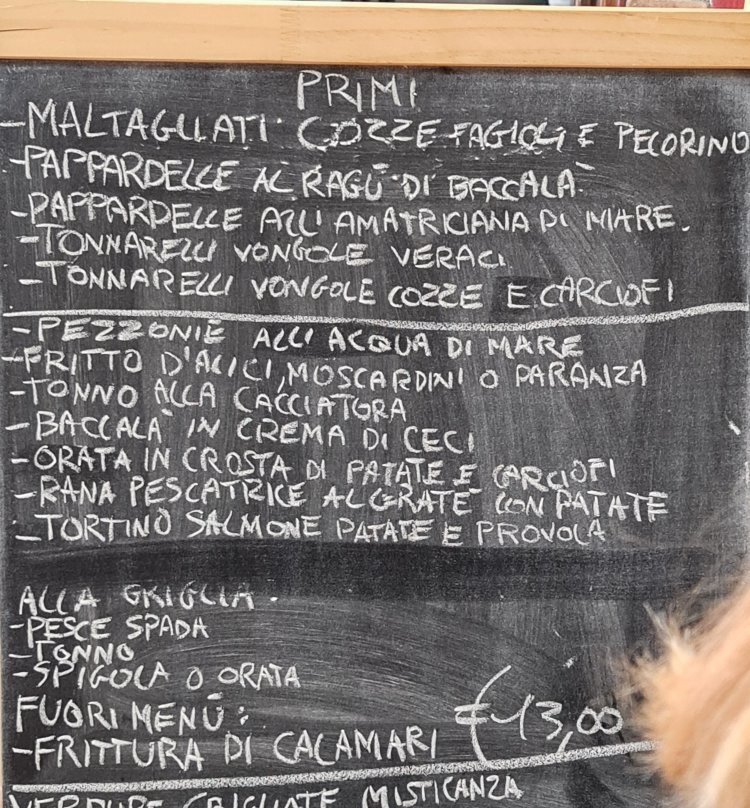 PRIMI
-MALTAGLIATI COZZE FAGIOLI E PECORINO
-PAPPARDELLE AL RAGÙ DI BACCALÀ
-PAPPARDELLE ALL'AMATRICIANA DI MARE.
-TONNARELLI VONGOLE VERACI
-TONNARELLI VONGOLE COZZE E CARCIOFI
-PEZZONIE ALL'ACQUA DI MARE
-FRITTO D'ALICI, MOSCARDINI O PARANZA
-TONNO ALLA CACCIATORA
-BACCALÀ IN CREMA DI CECI
-ORATA IN CROSTA DI PATATE E CARCIOFI
-RANA PESCATRICE AL GRATÈ CON PATATE
-TORTINO SALMONE PATATE E PROVOLA
ALLA GRIGLIA.
-PESCE SPADA
-TONNO
-SPIGOLA O ORATA
FUORI MENÙ:
-FRITTURA DI CALAMARI €13,00
VERDURE GRIGLIATE MISTICANZA